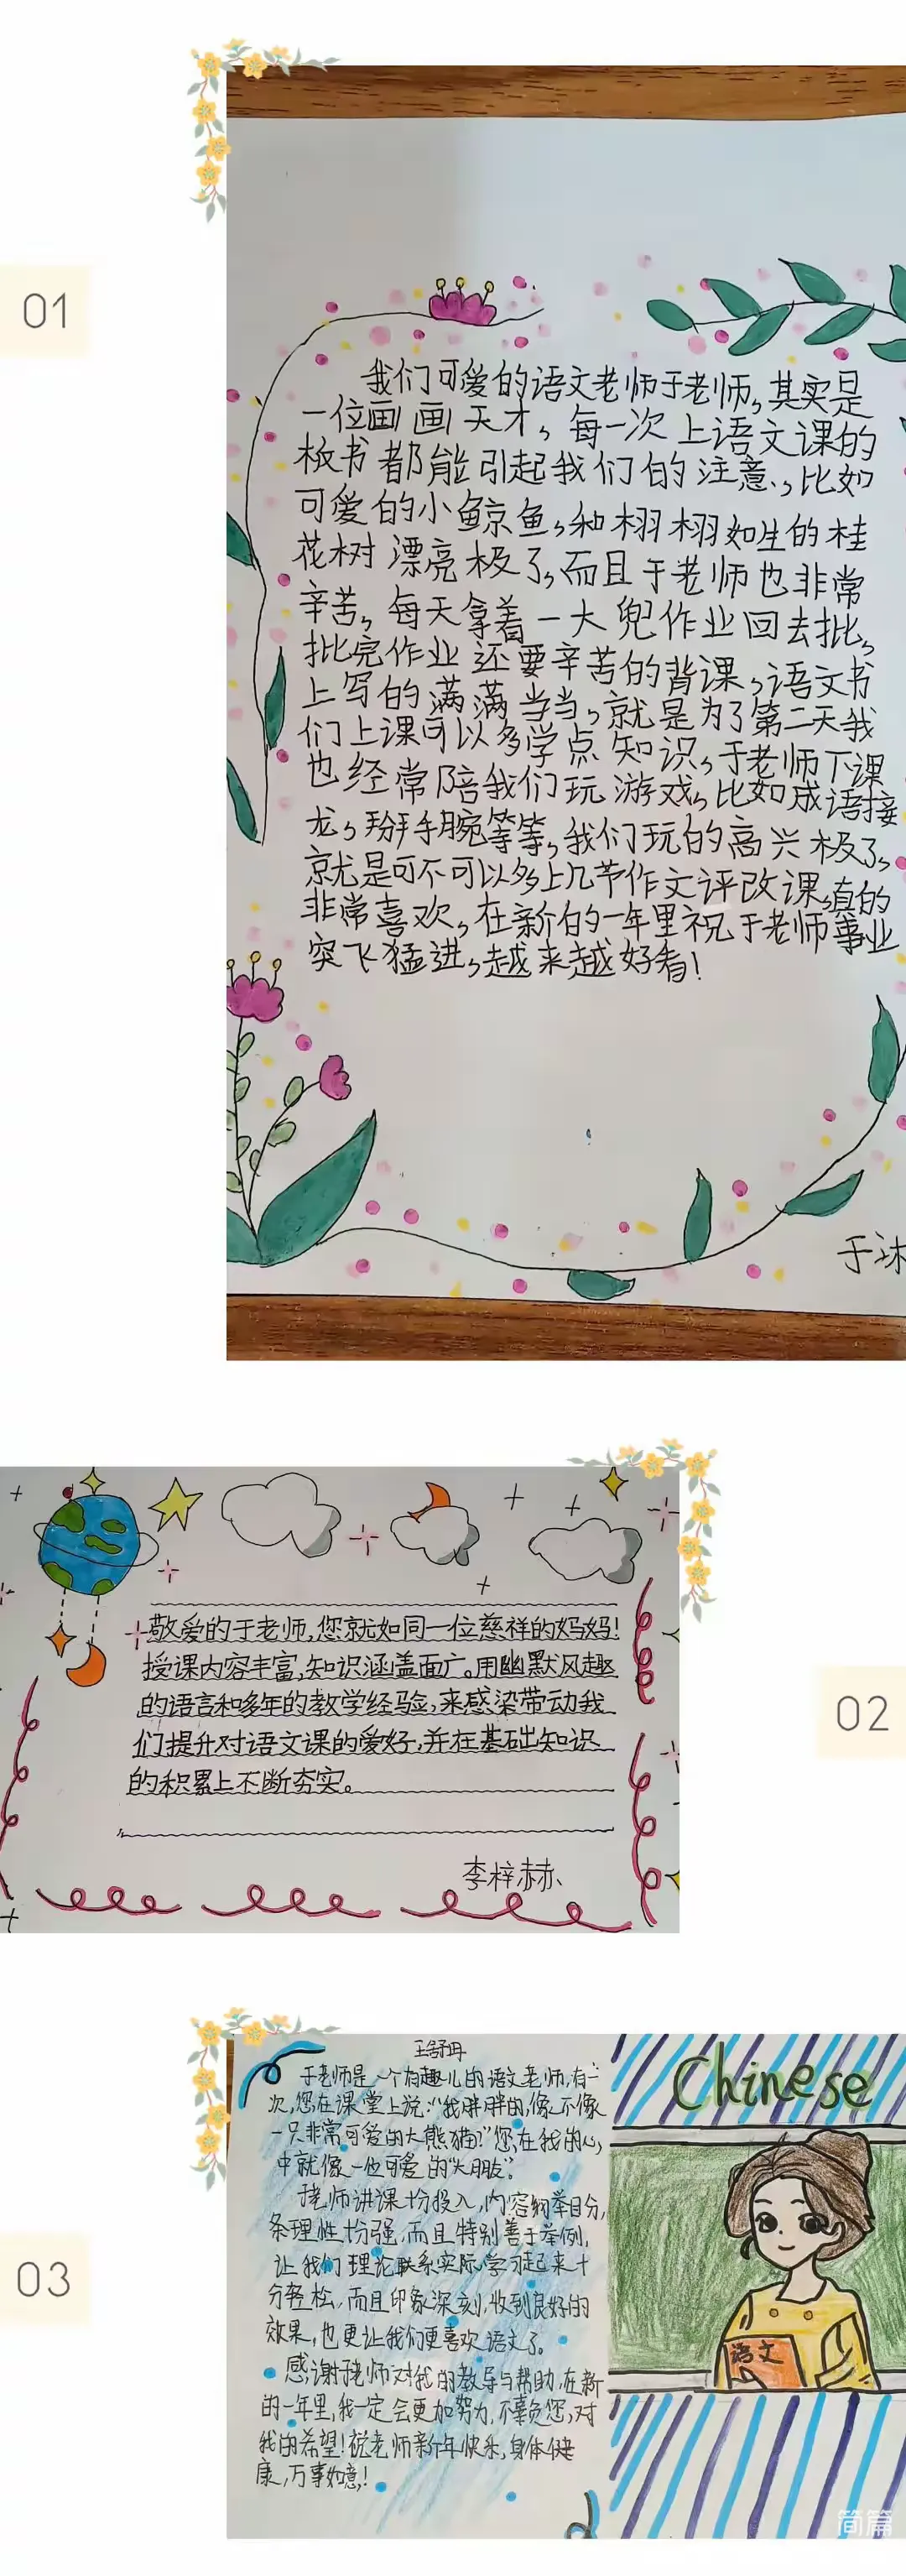 01
我们可爱的语文老师于老师,其实是
一位画画天才,每一次上语文课的
板书都能引起我们的注意,比如
可爱的小鲸鱼,和栩栩如生的桂
花树漂亮极了,而且于老师也非常
辛苦,每天拿着一大兜作业回去批,
批完作业还要辛苦的背课,语文书
上写的满满当当,就是为了第二天我
们上课可以多学点知识,于老师下课
也经常陪我们玩游戏,比如成语接
龙,掰手腕等等,我们玩的高兴极了,
就是可不可以多上几节作文评改课,真的
非常喜欢,在新的一年里祝于老师事业
突飞猛进,越来越好看!
于沐
敬爱的于老师,您就如同一位慈祥的妈妈!
授课内容丰富,知识涵盖面广。用幽默风趣
的语言和多年的教学经验,来感染带动我
们提升对语文课的爱好,并在基础知识
的积累上不断夯实。
李梓赫
02
03
王舒丹
于老师是一个有趣儿的语文老师,有一
次,您在课堂上说:“我胖胖的,像不像
一只非常可爱的大熊猫?”您在我的心
中就像一位可爱的“大朋友”。
于老师讲课十分投入,内容纲举目分,
条理性十分强,而且特别善于举例,
让我们理论联系实际,学习起来十
分轻松,而且印象深刻,收到良好的
效果,也更让我们更喜欢语文了。
感谢于老师对我的教导与帮助,在新
的一年里,我一定会更加努力,不辜负您,对
我的希望!祝老师新年快乐,身体健
康,万事如意!
Chinese
语文
简篇